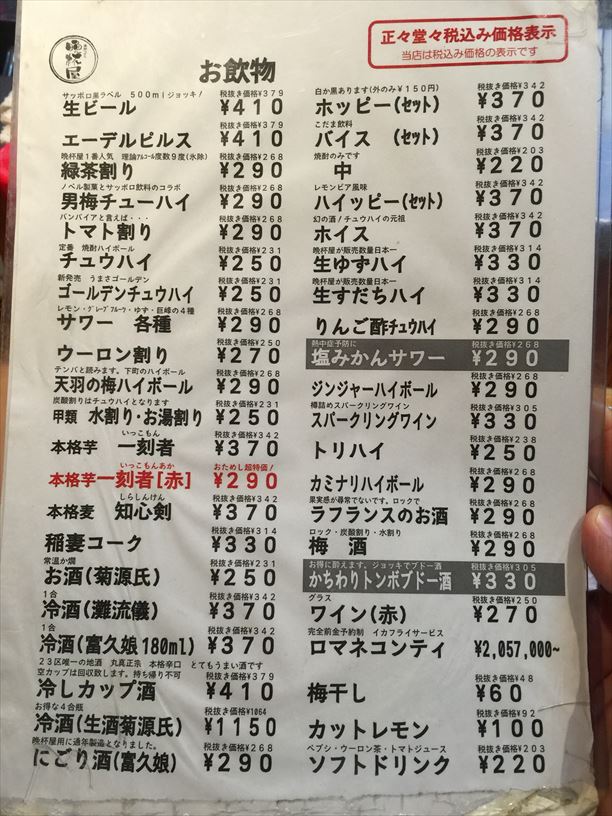 晩杯屋
正々堂々税込み価格表示
当店は税込み価格の表示です
お飲物
サッポロ黒ラベル 500mlジョッキ! 税抜き価格¥379
生ビール ¥410
税抜き価格¥379
エーデルピルス ¥410
晩杯屋1番人気 理論アルコール度数9度(氷除) 税抜き価格¥268
緑茶割り ¥290
ノベル製菓とサッポロ飲料のコラボ 税抜き価格¥268
男梅チューハイ ¥290
バンバイアと言えば・・・ 税抜き価格¥268
トマト割り ¥290
定番 焼酎ハイボール 税抜き価格¥231
チュウハイ ¥250
新発売 うまさゴールデン 税抜き価格¥231
ゴールデンチュウハイ ¥250
レモン・グレープフルーツ・ゆず・巨峰の4種 税抜き価格¥268
サワー 各種 ¥290
税抜き価格¥250
ウーロン割り ¥270
テンバと読みます。下町のハイボール 税抜き価格¥268
天羽の梅ハイボール ¥290
炭酸割りはチュウハイとなります 税抜き価格¥231
甲類 水割り・お湯割り ¥250
いっこもん 税抜き価格¥342
本格芋 一刻者 ¥370
いっこもんあか おためし超特価!
本格芋一刻者[赤] ¥290
しらしんけん 税抜き価格¥342
本格麦 知心剣 ¥370
税抜き価格¥314
稲妻コーク ¥330
常温か燗 税抜き価格¥231
お酒(菊源氏) ¥250
1合 税抜き価格¥342
冷酒(灘流儀) ¥370
1合 税抜き価格¥342
冷酒(富久娘180ml) ¥370
23区唯一の地酒 丸真正宗 本格辛口 とてもうまい酒です
空カップは回収致します。持ち帰り不可 税抜き価格¥379
冷しカップ酒 ¥410
お得な4合瓶 税抜き価格¥1064
冷酒(生酒菊源氏) ¥1150
晩杯屋用に通年製造となりました。 税抜き価格¥268
にごり酒(富久娘) ¥290
白か黒あります(外のみ¥150円) 税抜き価格¥342
ホッピー(セット) ¥370
こだま飲料 税抜き価格¥342
バイス (セット) ¥370
焼酎のみです 税抜き価格¥203
中 ¥220
レモンビア風味 税抜き価格¥342
ハイッピー(セット) ¥370
幻の酒!チュウハイの元祖 税抜き価格¥342
ホイス ¥370
晩杯屋が販売数量日本一 税抜き価格¥314
生ゆずハイ ¥330
晩杯屋が販売数量日本一 税抜き価格¥314
生すだちハイ ¥330
税抜き価格¥268
りんご酢チュウハイ ¥290
熱中症予防に 税抜き価格¥268
塩みかんサワー ¥290
税抜き価格¥268
ジンジャーハイボール ¥290
樽詰めスパークリングワイン 税抜き価格¥305
スパークリングワイン ¥330
税抜き価格¥238
トリハイ ¥250
税抜き価格¥268
カミナリハイボール ¥290
果実感が尋常でないです。ロックで 税抜き価格¥268
ラフランスのお酒 ¥290
ロック・炭酸割り・水割り 税抜き価格¥268
梅 酒 ¥290
お得に酔えます。ジョッキでブドー酒 税抜き価格¥305
かちわりトンボブドー酒 ¥330
グラス 税抜き価格¥250
ワイン(赤) ¥270
完全前金予約制 イカフライサービス
ロマネコンティ ¥2,057,000~
税抜き価格¥48
梅干し ¥60
税抜き価格¥92
カットレモン ¥100
ペプシ・ウーロン茶・トマトジュース 税抜き価格¥203
ソフトドリンク ¥220